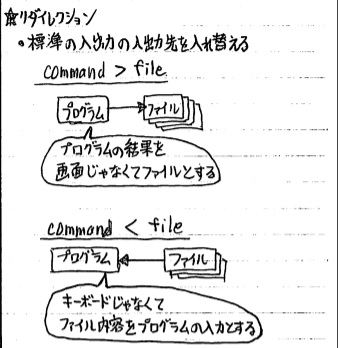 ☆リダイレクション
・標準の入出力の入出力先を入れ替える
command > file
プログラム
ファイル
プログラムの結果を
画面じゃなくてファイルとする
command < file
プログラム
ファイル
キーボードじゃなくて
ファイル内容をプログラムの入力とする